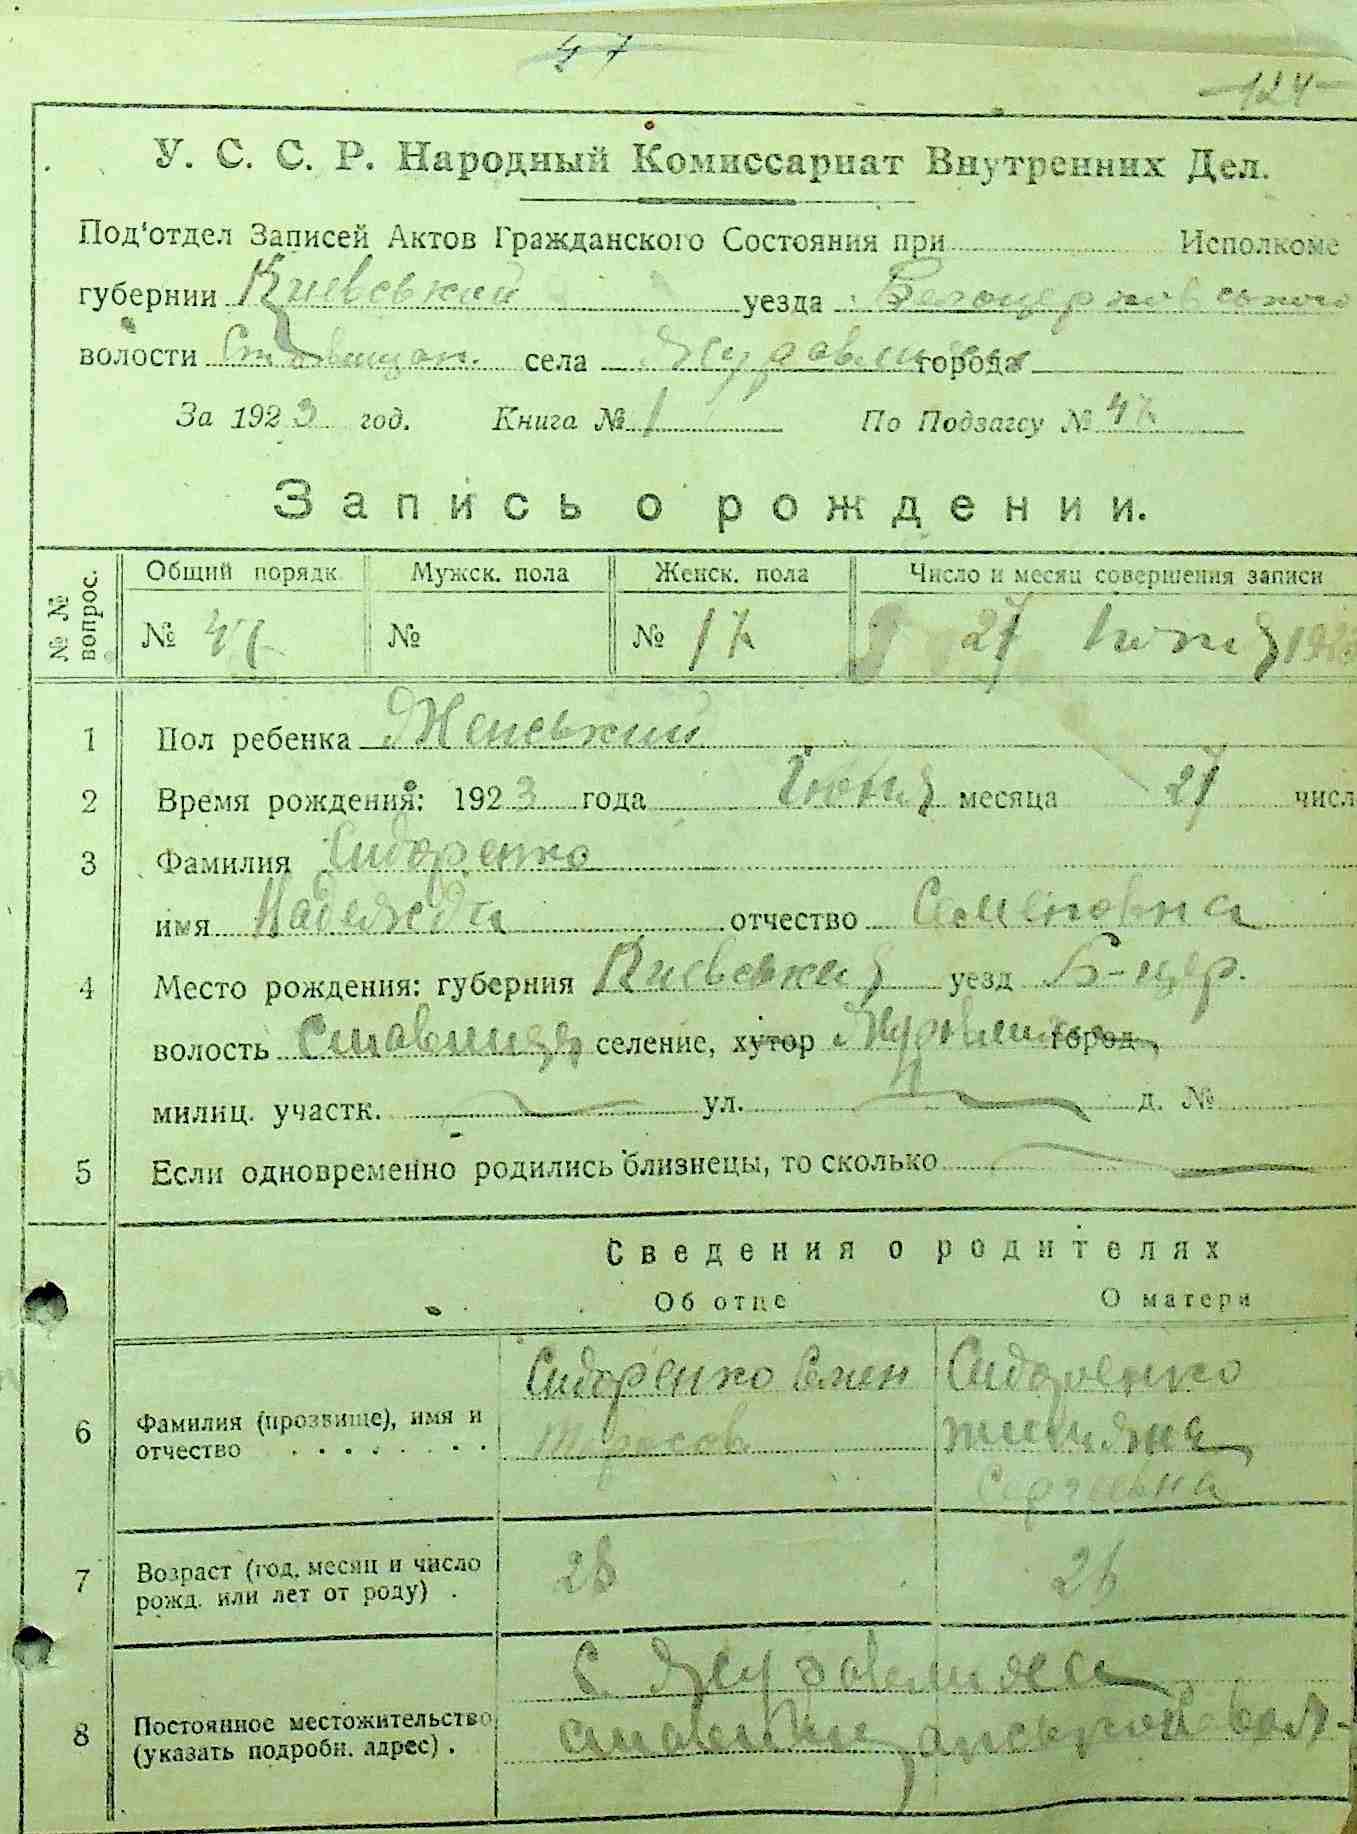 47
124
У. С. С. Р. Народный Комиссариат Внутренних Дел.
Под'отдел Записей Актов Гражданского Состояния при Исполкоме
губернии Киевской уезда Белоцерковского
волости Ставищан. села Журавлиха города
За 1923 год. Книга № 1 По Подзагсу № 47
Запись о рождении.
№ № вопрос. Общий порядк. Мужск. пола Женск. пола Число и месяц совершения записи
№ 47 № № 17 27 1923
1 Пол ребенка Женський
2 Время рождения: 1923 года Июня месяца 27 числ
3 Фамилия Сидоренко
имя Надежда отчество Семеновна
4 Место рождения: губерния Киевская уезд Б-цер.
волость Ставищан селение, хутор Журавлиха город
милиц. участк. ул. д. №
5 Если одновременно родились близнецы, то сколько
Сведения о родителях
Об отце О матери
6 Фамилия (прозвище), имя и отчество
Сидоренко Семен
Тарасов
Сидоренко
Татьяна
Сергеевна
7 Возраст (год, месяц и число рожд. или лет от роду) . 26 26
8 Постоянное местожительство (указать подробн. адрес) .
с. Журавлиха
Ставищанской вол.